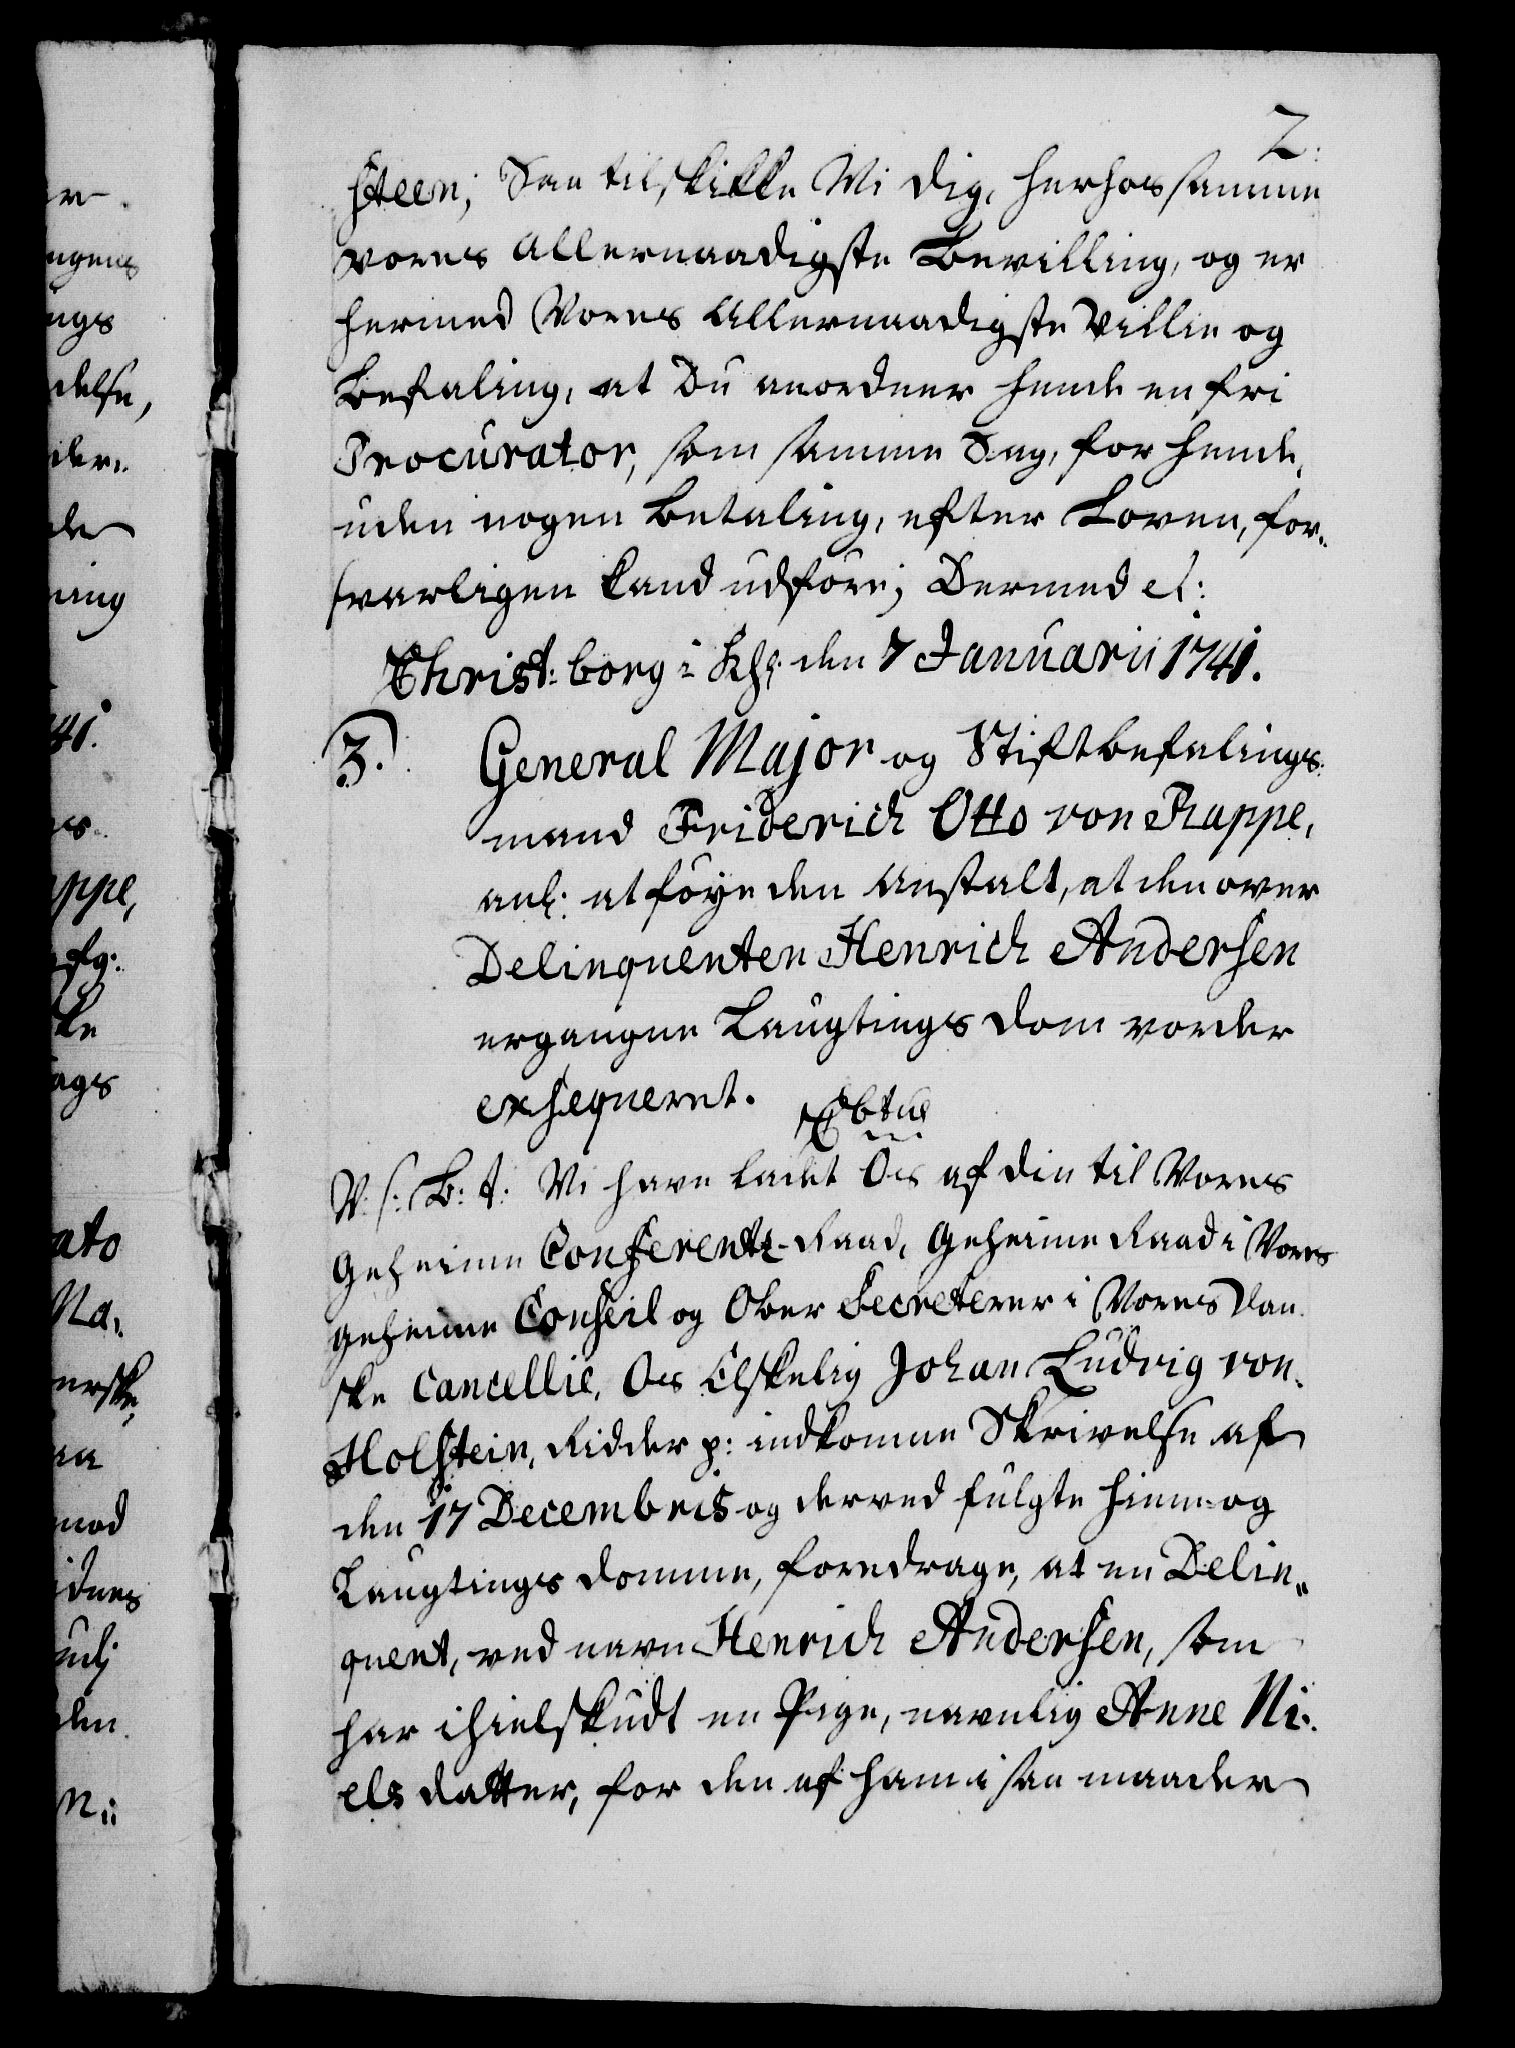 2.
steen; Saa tilskikke Wi dig, herhos samme
vores Allernaadigste Bevilling, og er
hermed Vores Allernaadigste Villie og
Befaling, at Du anordner hende en fri
Procurator, som samme Sag, for hende,
uden nogen betaling, efter Loven, for„
svarligen kand udföre; Dermed etc:
Christ: borg i Kh: den 7 Januarii 1741.
3. General Major og Stiftbefalings:
mand Friderich Otto von Rappe,
anl: at föye den Anstalt, at den over
Delinquenten Henrich Andersen
ergangne Laugtings dom vorder
exseqveret.
V: s: G: t: Vi have ladet Os af din til Vores
Geheime Conferentz-Raad, Geheime Raad i Vores
Geheime Conseil og Ober Secreterer i Vores Dan
ske Cancellie, Os Elskelig Johan Ludvig von
Holstein, Ridder p: indkomne Skrivelse af
den 17 Decembris og derved fulgte Hiem- og
Laugtings domme, foredrage, at en Delin„
quent, ved navn Henrich Andersen, som
har ihielskudt en Pige, navnlig Anne Ni:
els datter, for den af ham i saa maader